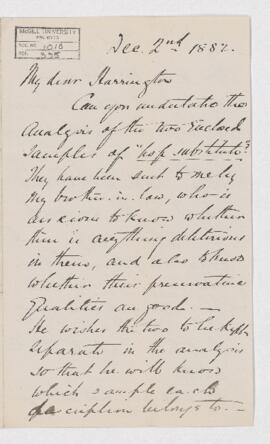 McGILL UNIVERSITY
ARCHIVES
ACC. NO. 1016
REF.
Dec. 2nd 1882.
My dear Harrington
Can you undertake the
Analysis of the two Enclosed
Samples of "hop substitute"?
They have been sent to me by
my brother-in-law, who is
anxious to know whether
there is anything deleterious
in them, and also to know
whether their preservative
qualities are good. —
He wishes the two to be kept
separate in the analysis
so that he will know
which sample each
description belongs to. —